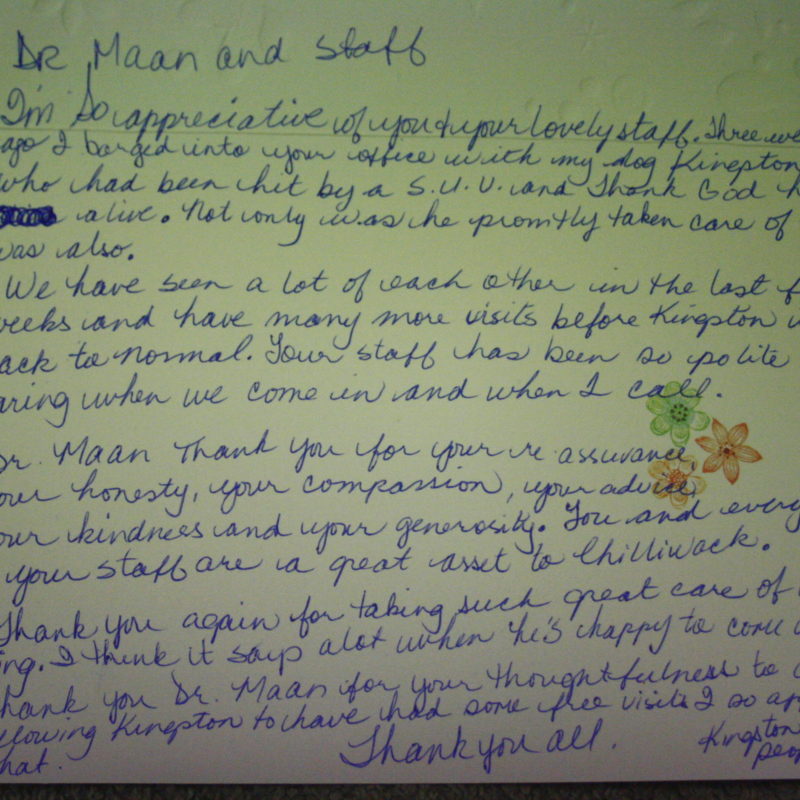 Dr Maan and staff
I'm so appreciative of you & your lovely staff. Three we
ago I barged into your office with my dog Kingston
who had been hit by a S.U.V. and Thank God h
alive. Not only was he promtly taken care of
was also.
We have seen a lot of each other in the last f
weeks and have many more visits before Kingston w
ack to normal. Your staff has been so polite
aring when we come in and when I call.
Dr. Maan Thank you for your re assurance,
our honesty, your compassion, your advice
our kindness and your generosity. You and every
your staff are a great asset to Chilliwack.
Thank you again for taking such great care of
ing. I think it says alot when he's happy to come
hank you Dr. Maan for your thoughtfulness to a
llowing Kingston to have had some free visits I so ap
hat.
Thank you all.
Kingston
peop